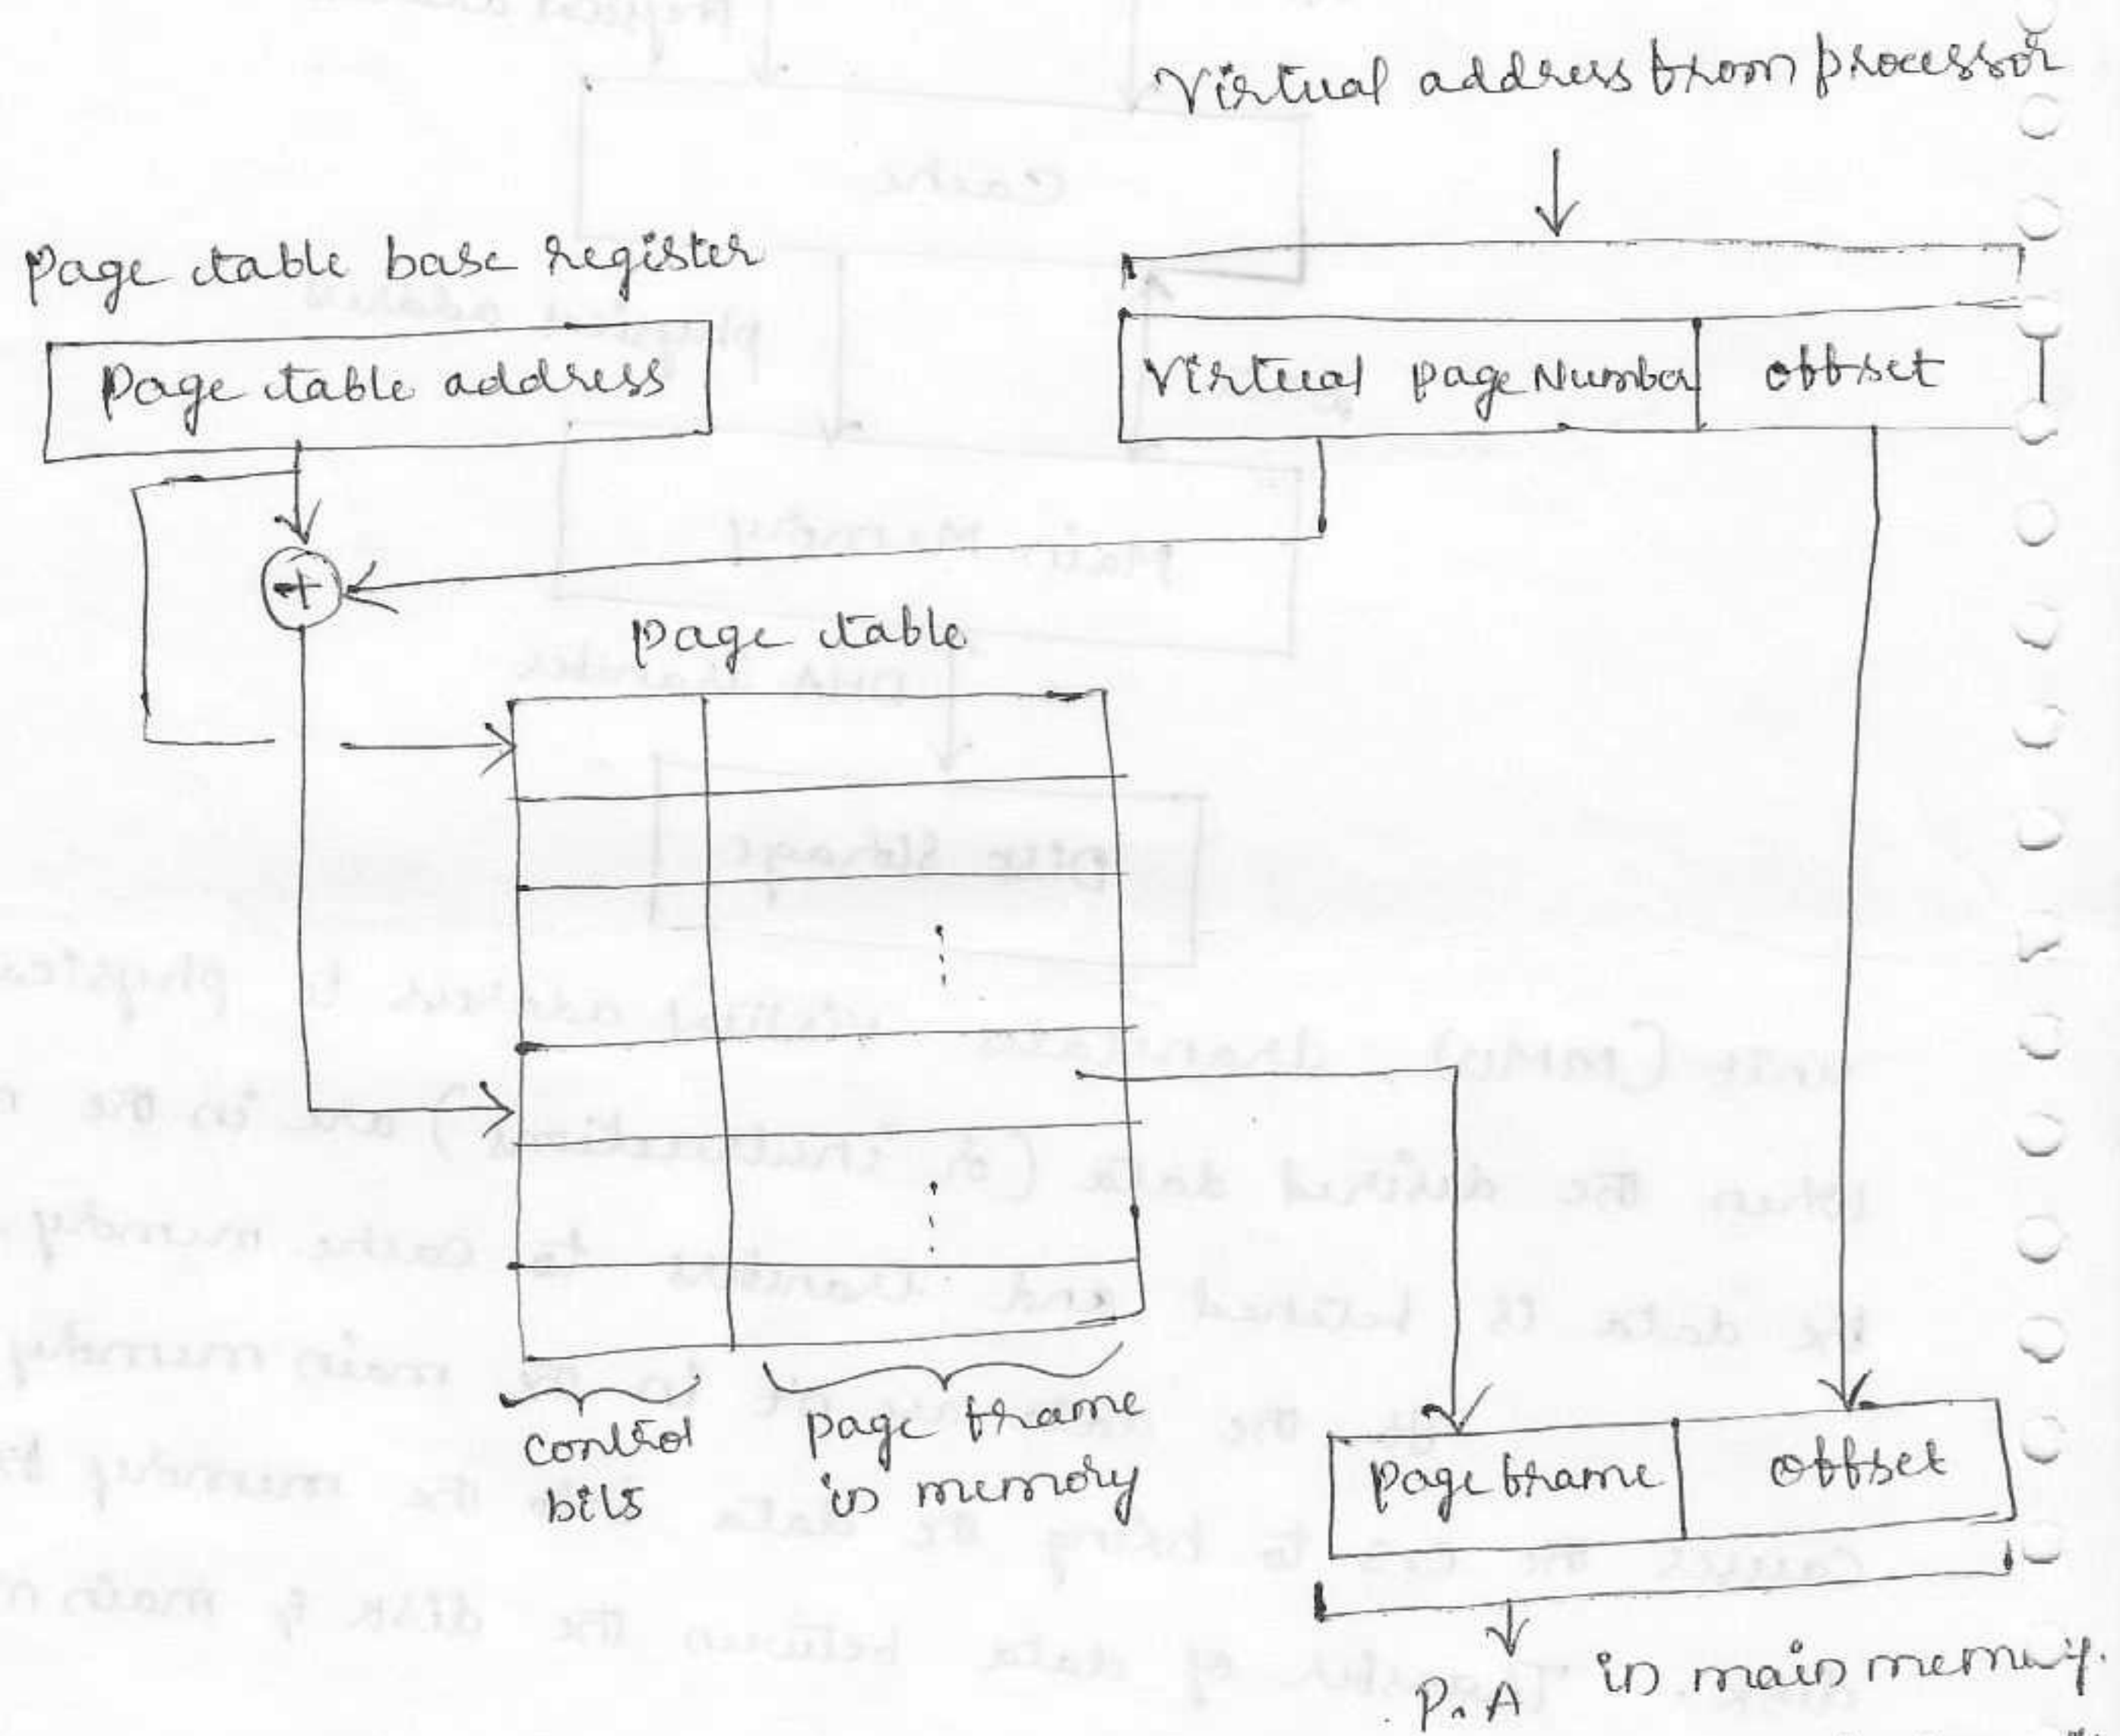 Virtual address from processor
Page table base register
Page table address
Virtual page Number offset
+
page table
control bits
page frame in memory
page frame offset
P.A in main memory.